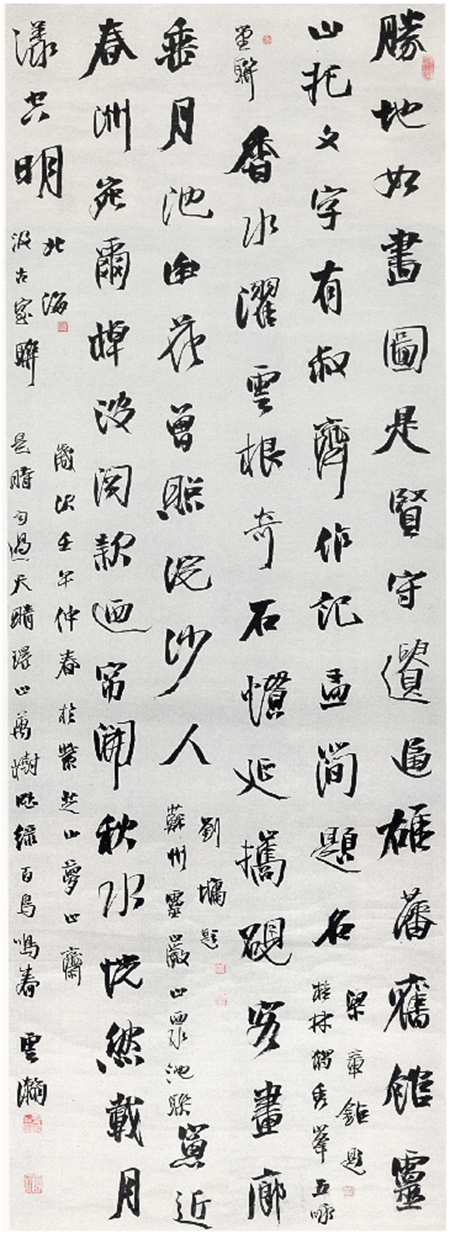 勝地如畫圖是賢守遺區雄藩舊館靈
山托文字有叔齊作記孟簡題名
梁章鉅題
桂林獨秀峯五詠
堂聯
香水濯雲根奇石慣延攜硯客畫廊
垂月地幽花曾照浣沙人
劉墉題
蘇州靈巖山池聯
窗近
春洲宛爾棹波聞欸迺帘開秋水恍然載月
漾空明
北海
汲古堂聯
歲次壬午仲春於紫芝山夢山齋
是時雨過天晴環山萬樹吐綠百鳥鳴春 雲瀚